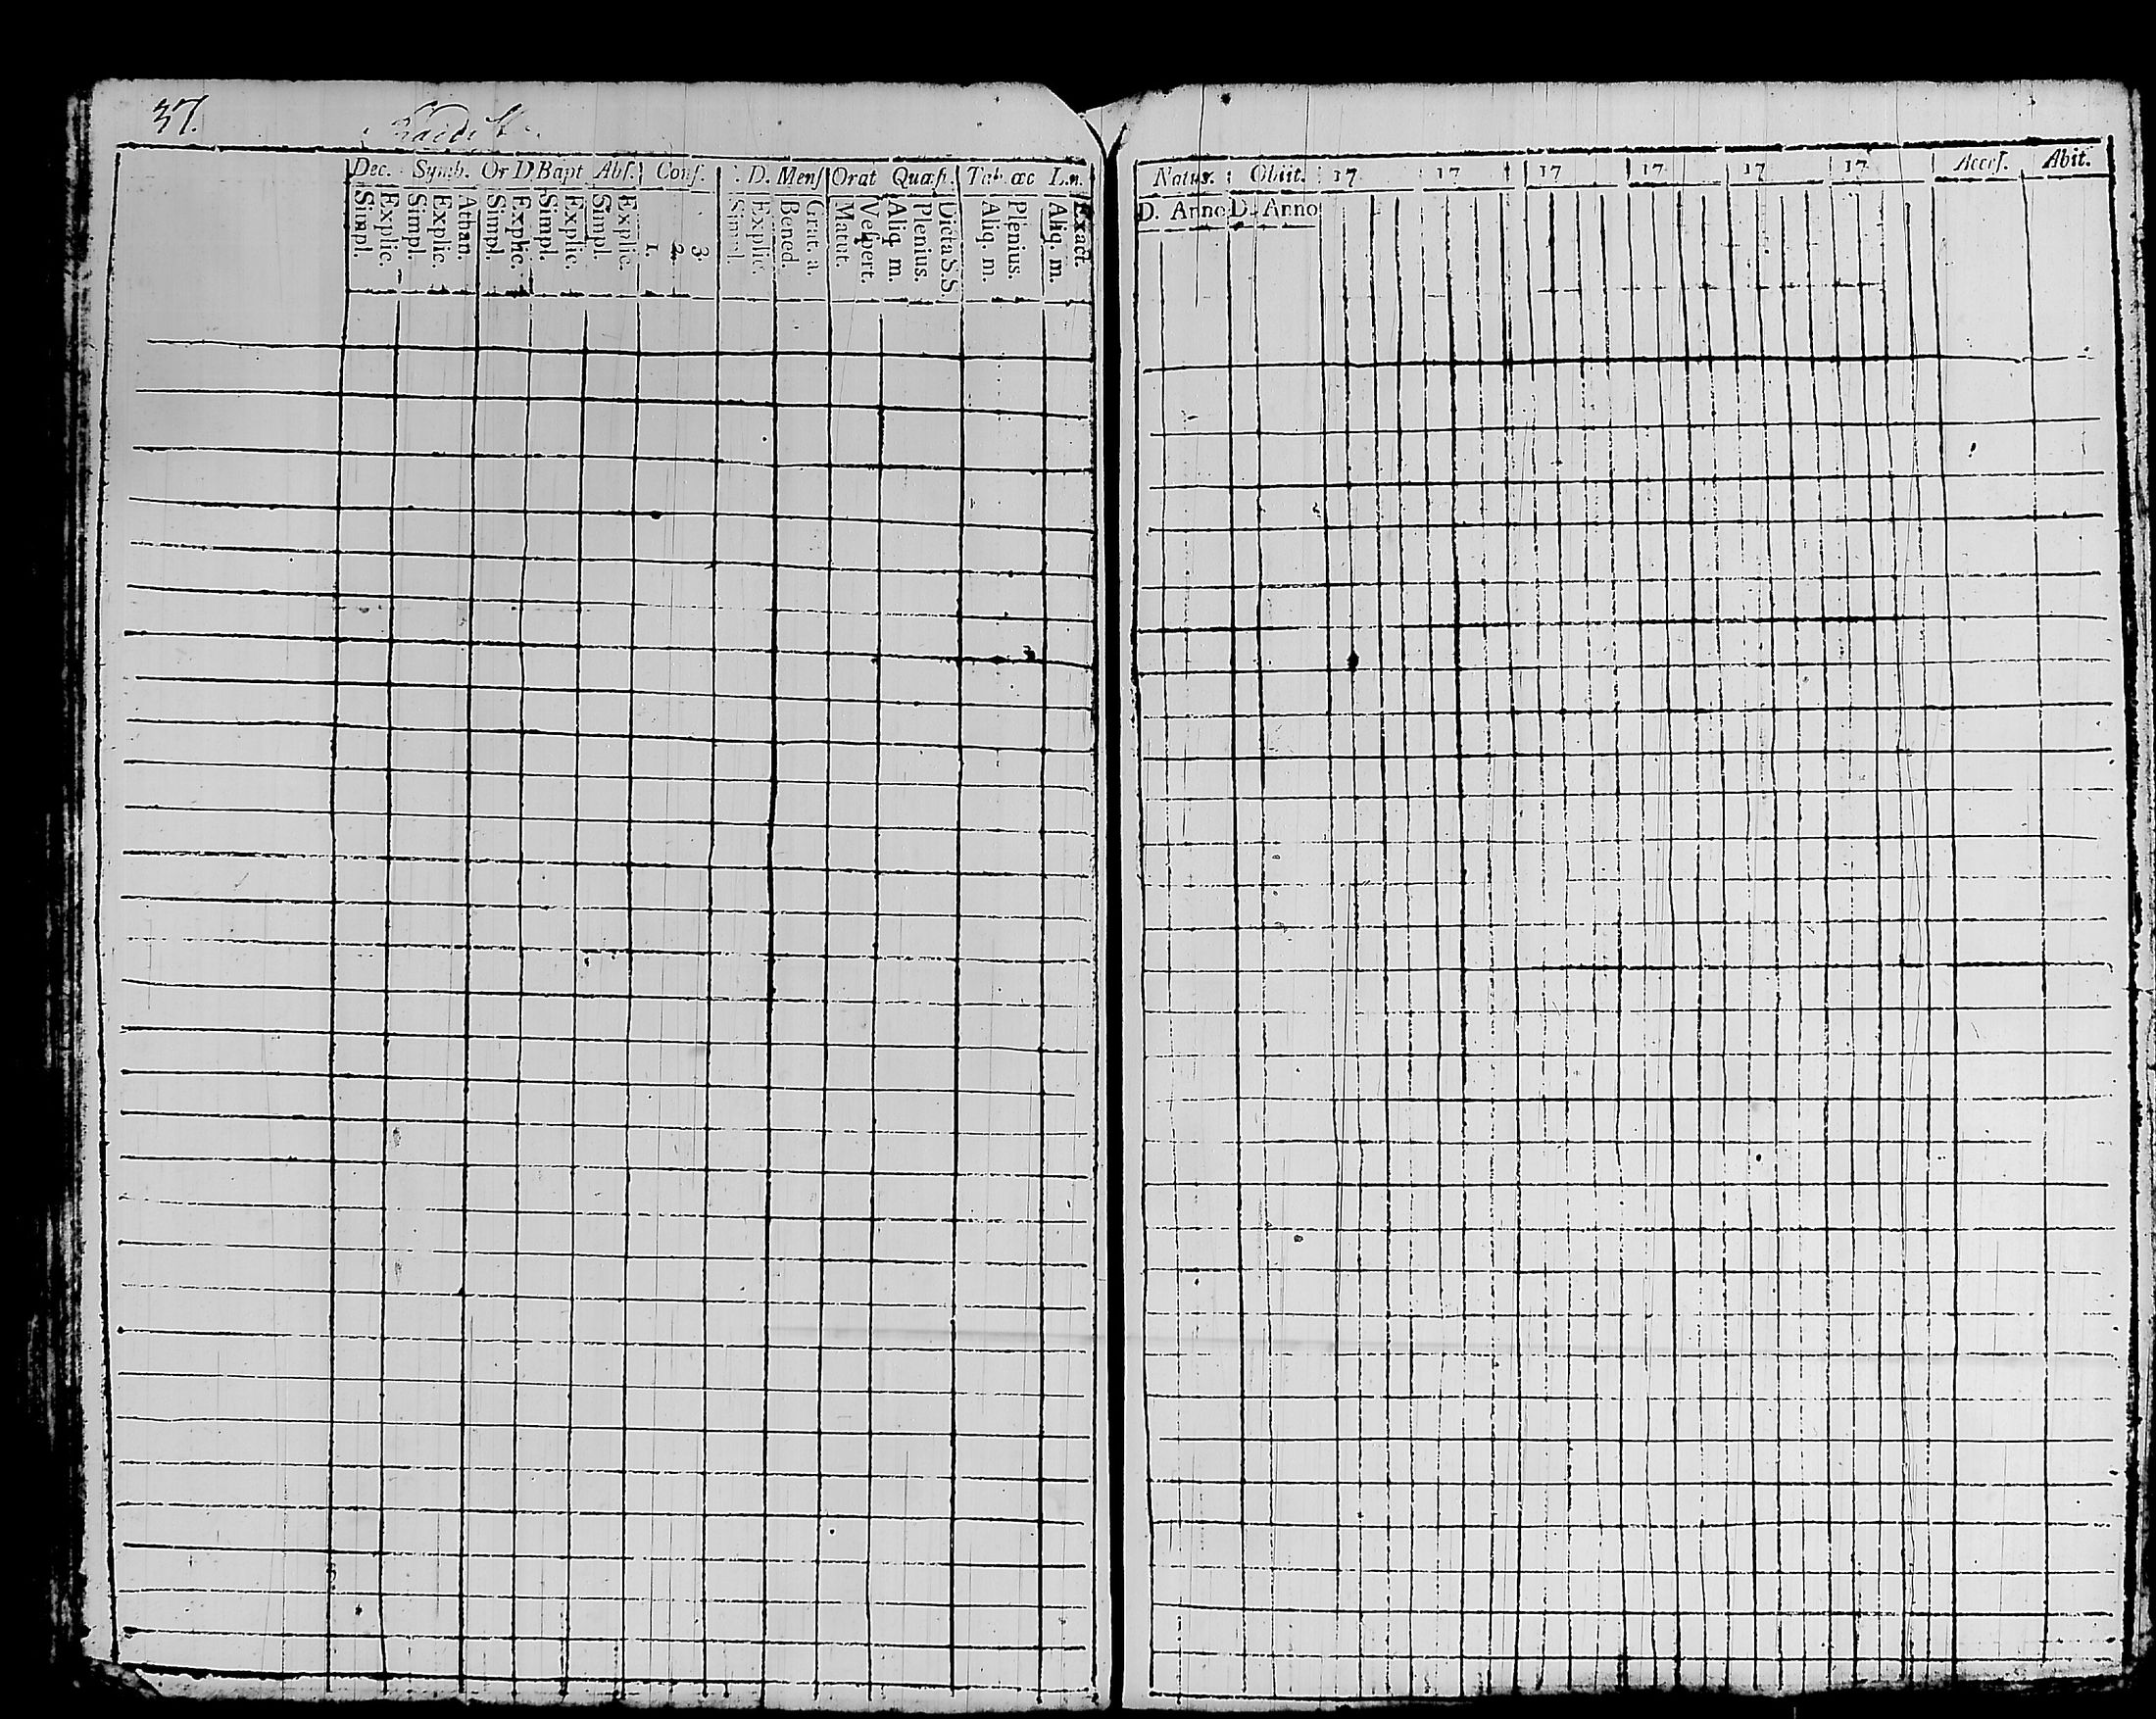 37.
Dec. Symb. Or D Bapt Abſ. Conf. D. Menſ Orat Quæſt. Tab. œc L.n.
Simpl. Explic. Simpl. Explic. Athan. Simpl. Explic. Simpl. Explic. Simpl. Explic. 1. 2. 3. Simpl. Explic. Bened. Grat. a. Matut. Veſpert. Aliq. m. Plenius. Dicta S.S. Aliq. m. Plenius. Aliq. m. Exact.
Natus. Obiit. 17 17 17 17 17 17 Acceſ. Abit.
D. Anno D. Anno